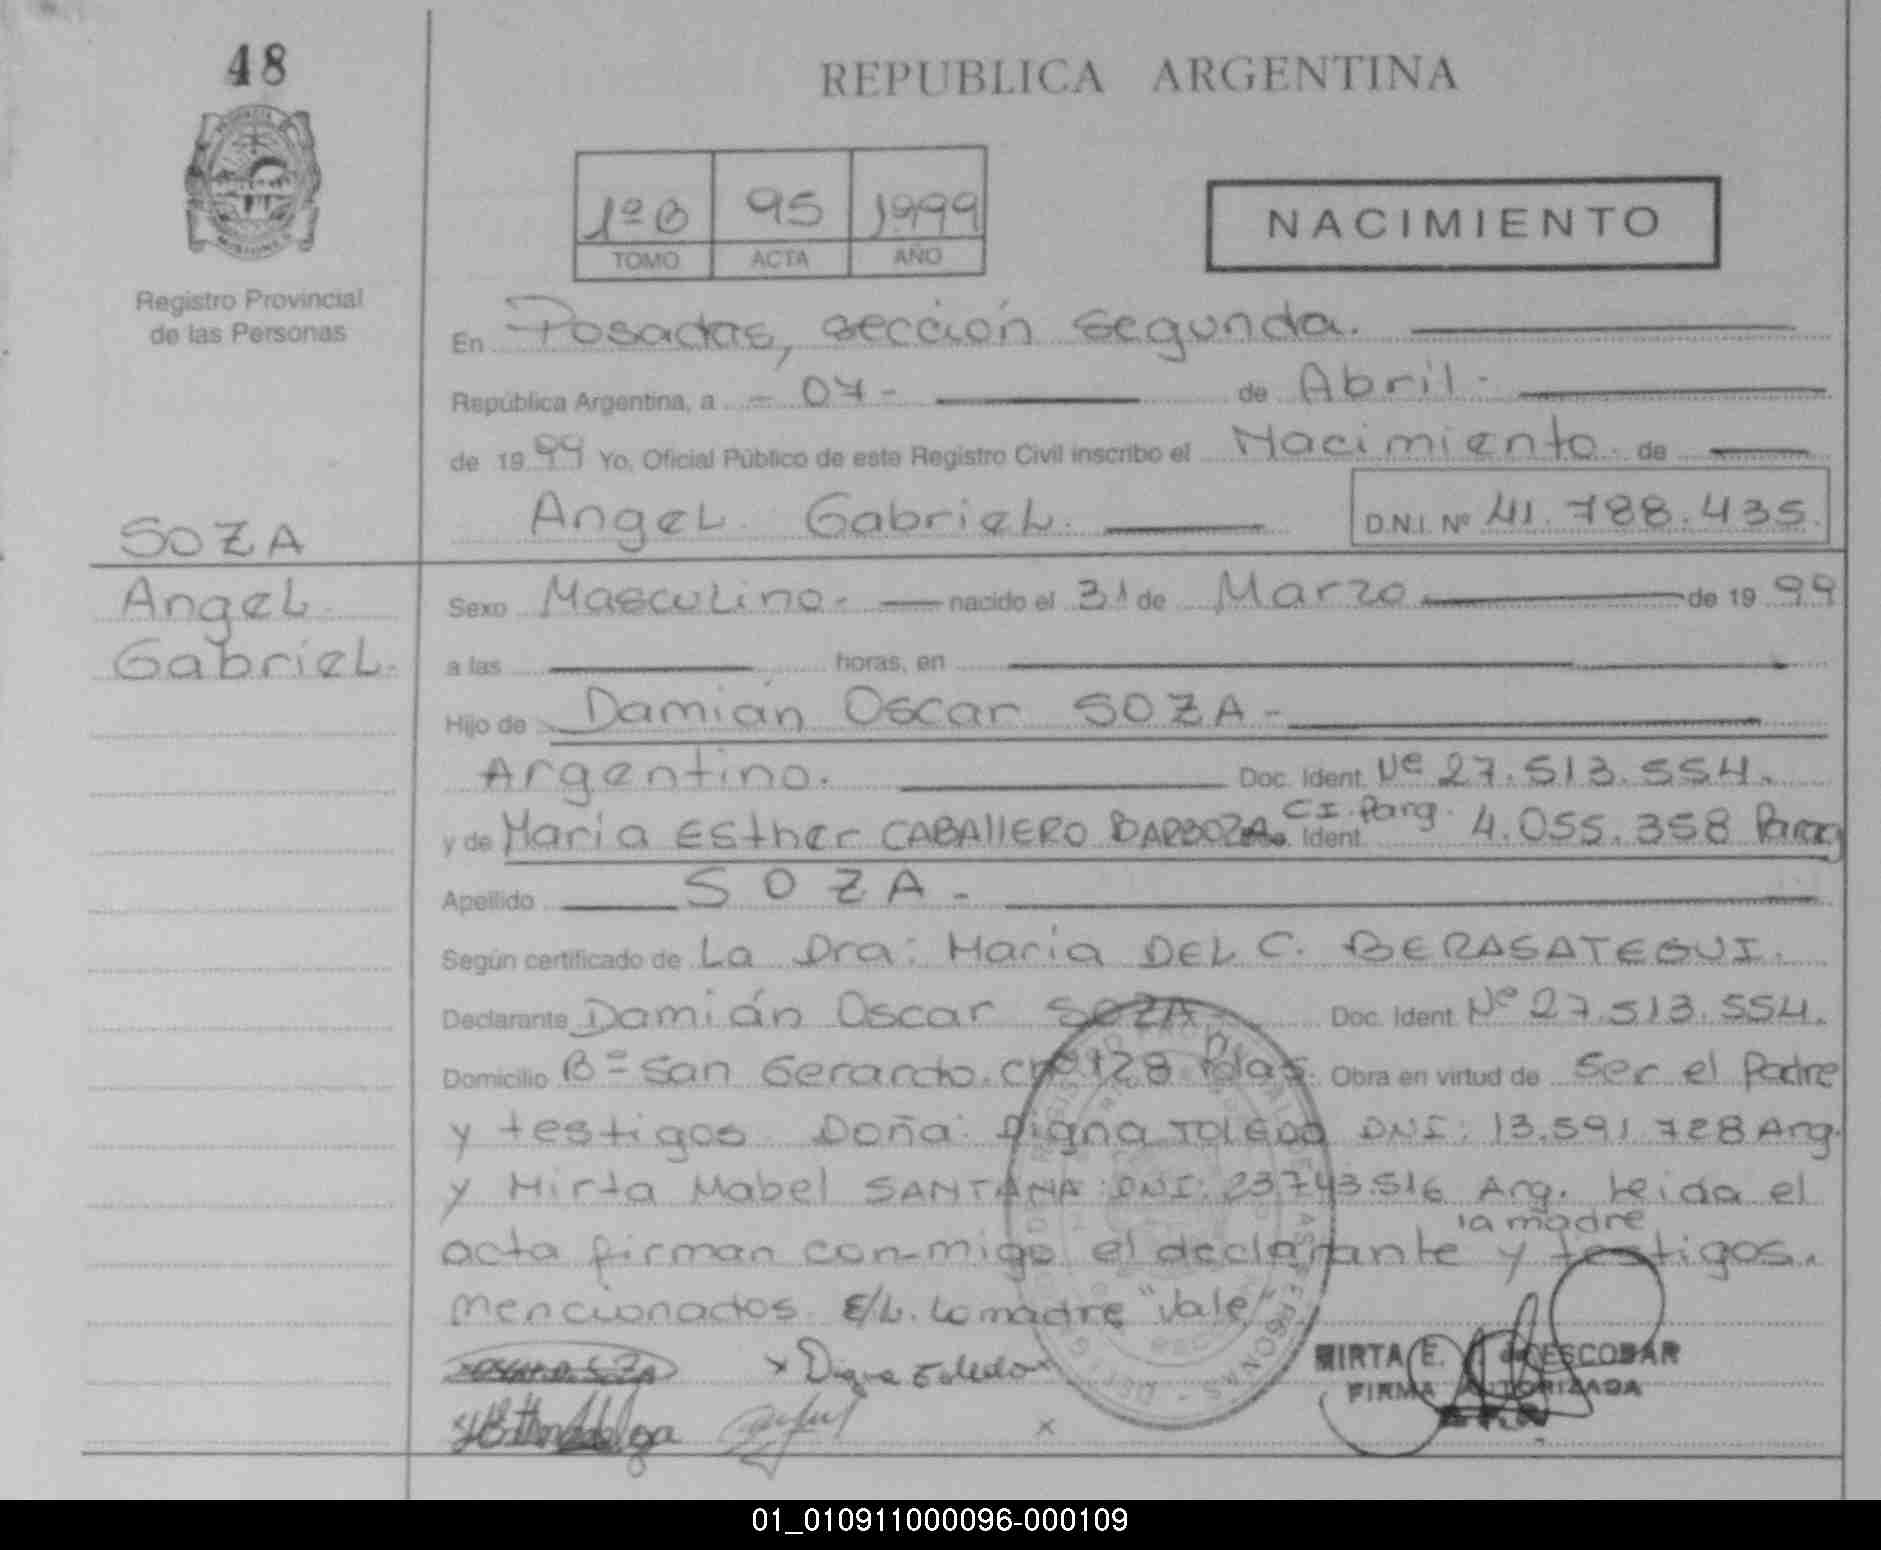 48
REPUBLICA ARGENTINA
1º B 95 1999
TOMO ACTA AÑO
NACIMIENTO
Registro Provincial
de las Personas
En Posadas, sección segunda.
República Argentina, a - 07 - de Abril -
de 1999 Yo, Oficial Público de este Registro Civil inscribo el Nacimiento de
Angel Gabriel. D.N.I. Nº 41.788.435.
SOZA
Angel
Gabriel.
Sexo Masculino - nacido el 31 de Marzo de 1999
a las horas, en
Hijo de Damián Oscar SOZA -
Argentino. Doc. Ident. Nº 27.513.554.
y de María Esther CABALLERO BARBOZA Ident. CI. Parg. 4.055.358 Parag
Apellido SOZA -
Según certificado de La Dra: María DEL C. BERASATEGUI.
Declarante Damián Oscar SOZA - Doc. Ident. Nº 27.513.554.
Domicilio Bº San Gerardo. cnº 128 Pdas. Obra en virtud de Ser el Padre
y testigos Doña: Digna TOLEDO DNI: 13.591.728 Arg.
y Mirta Mabel SANTANA DNI: 23.743.516 Arg. Leida el
la madre
acta firman con-migo el declarante y testigos.
mencionados. E/L. La madre "Vale"
Digna Toledo
MIRTA E. de ESCOBAR
FIRMA AUTORIZADA
01_010911000096-000109